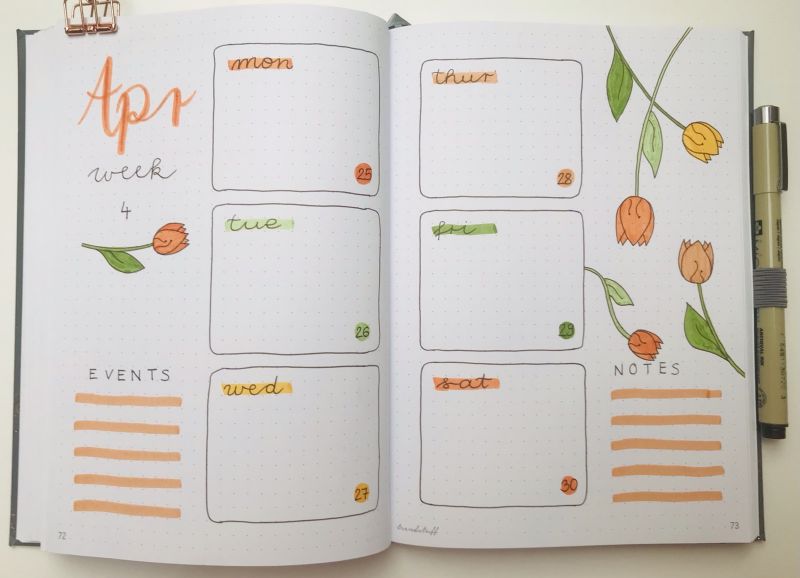 Apr
week
4
EVENTS
72
mon
25
tue
26
wed
27
thur
28
fri
29
sat
30
NOTES
73